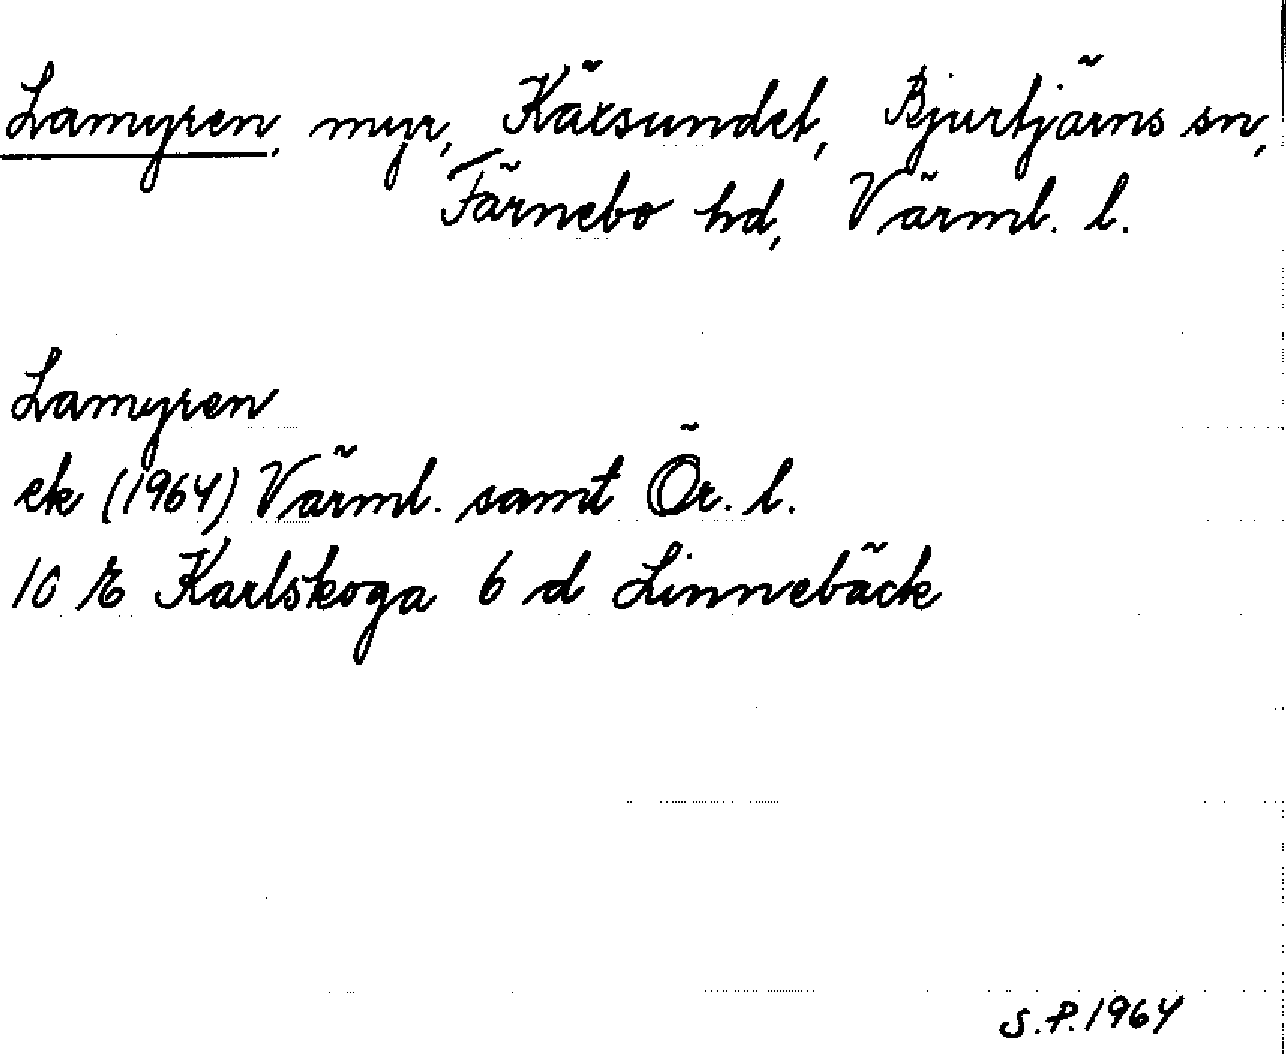 Lamyren, myr, Käxsundet, Bjurtjärns sn,
Färnebo hd, Värml. l.
Lamyren
ek (1964) Värml. samt Ör. l.
10 E Karlskoga 6 d Linnebäck
S.P. 1964